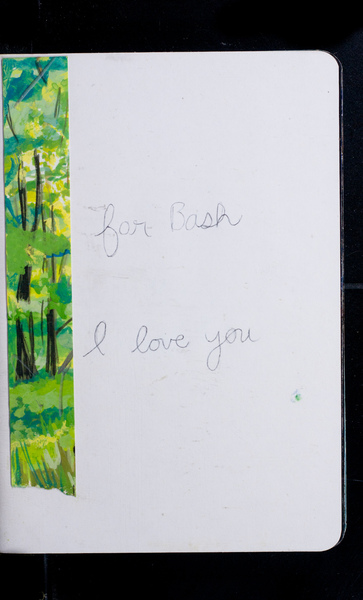 for Bash
I love you